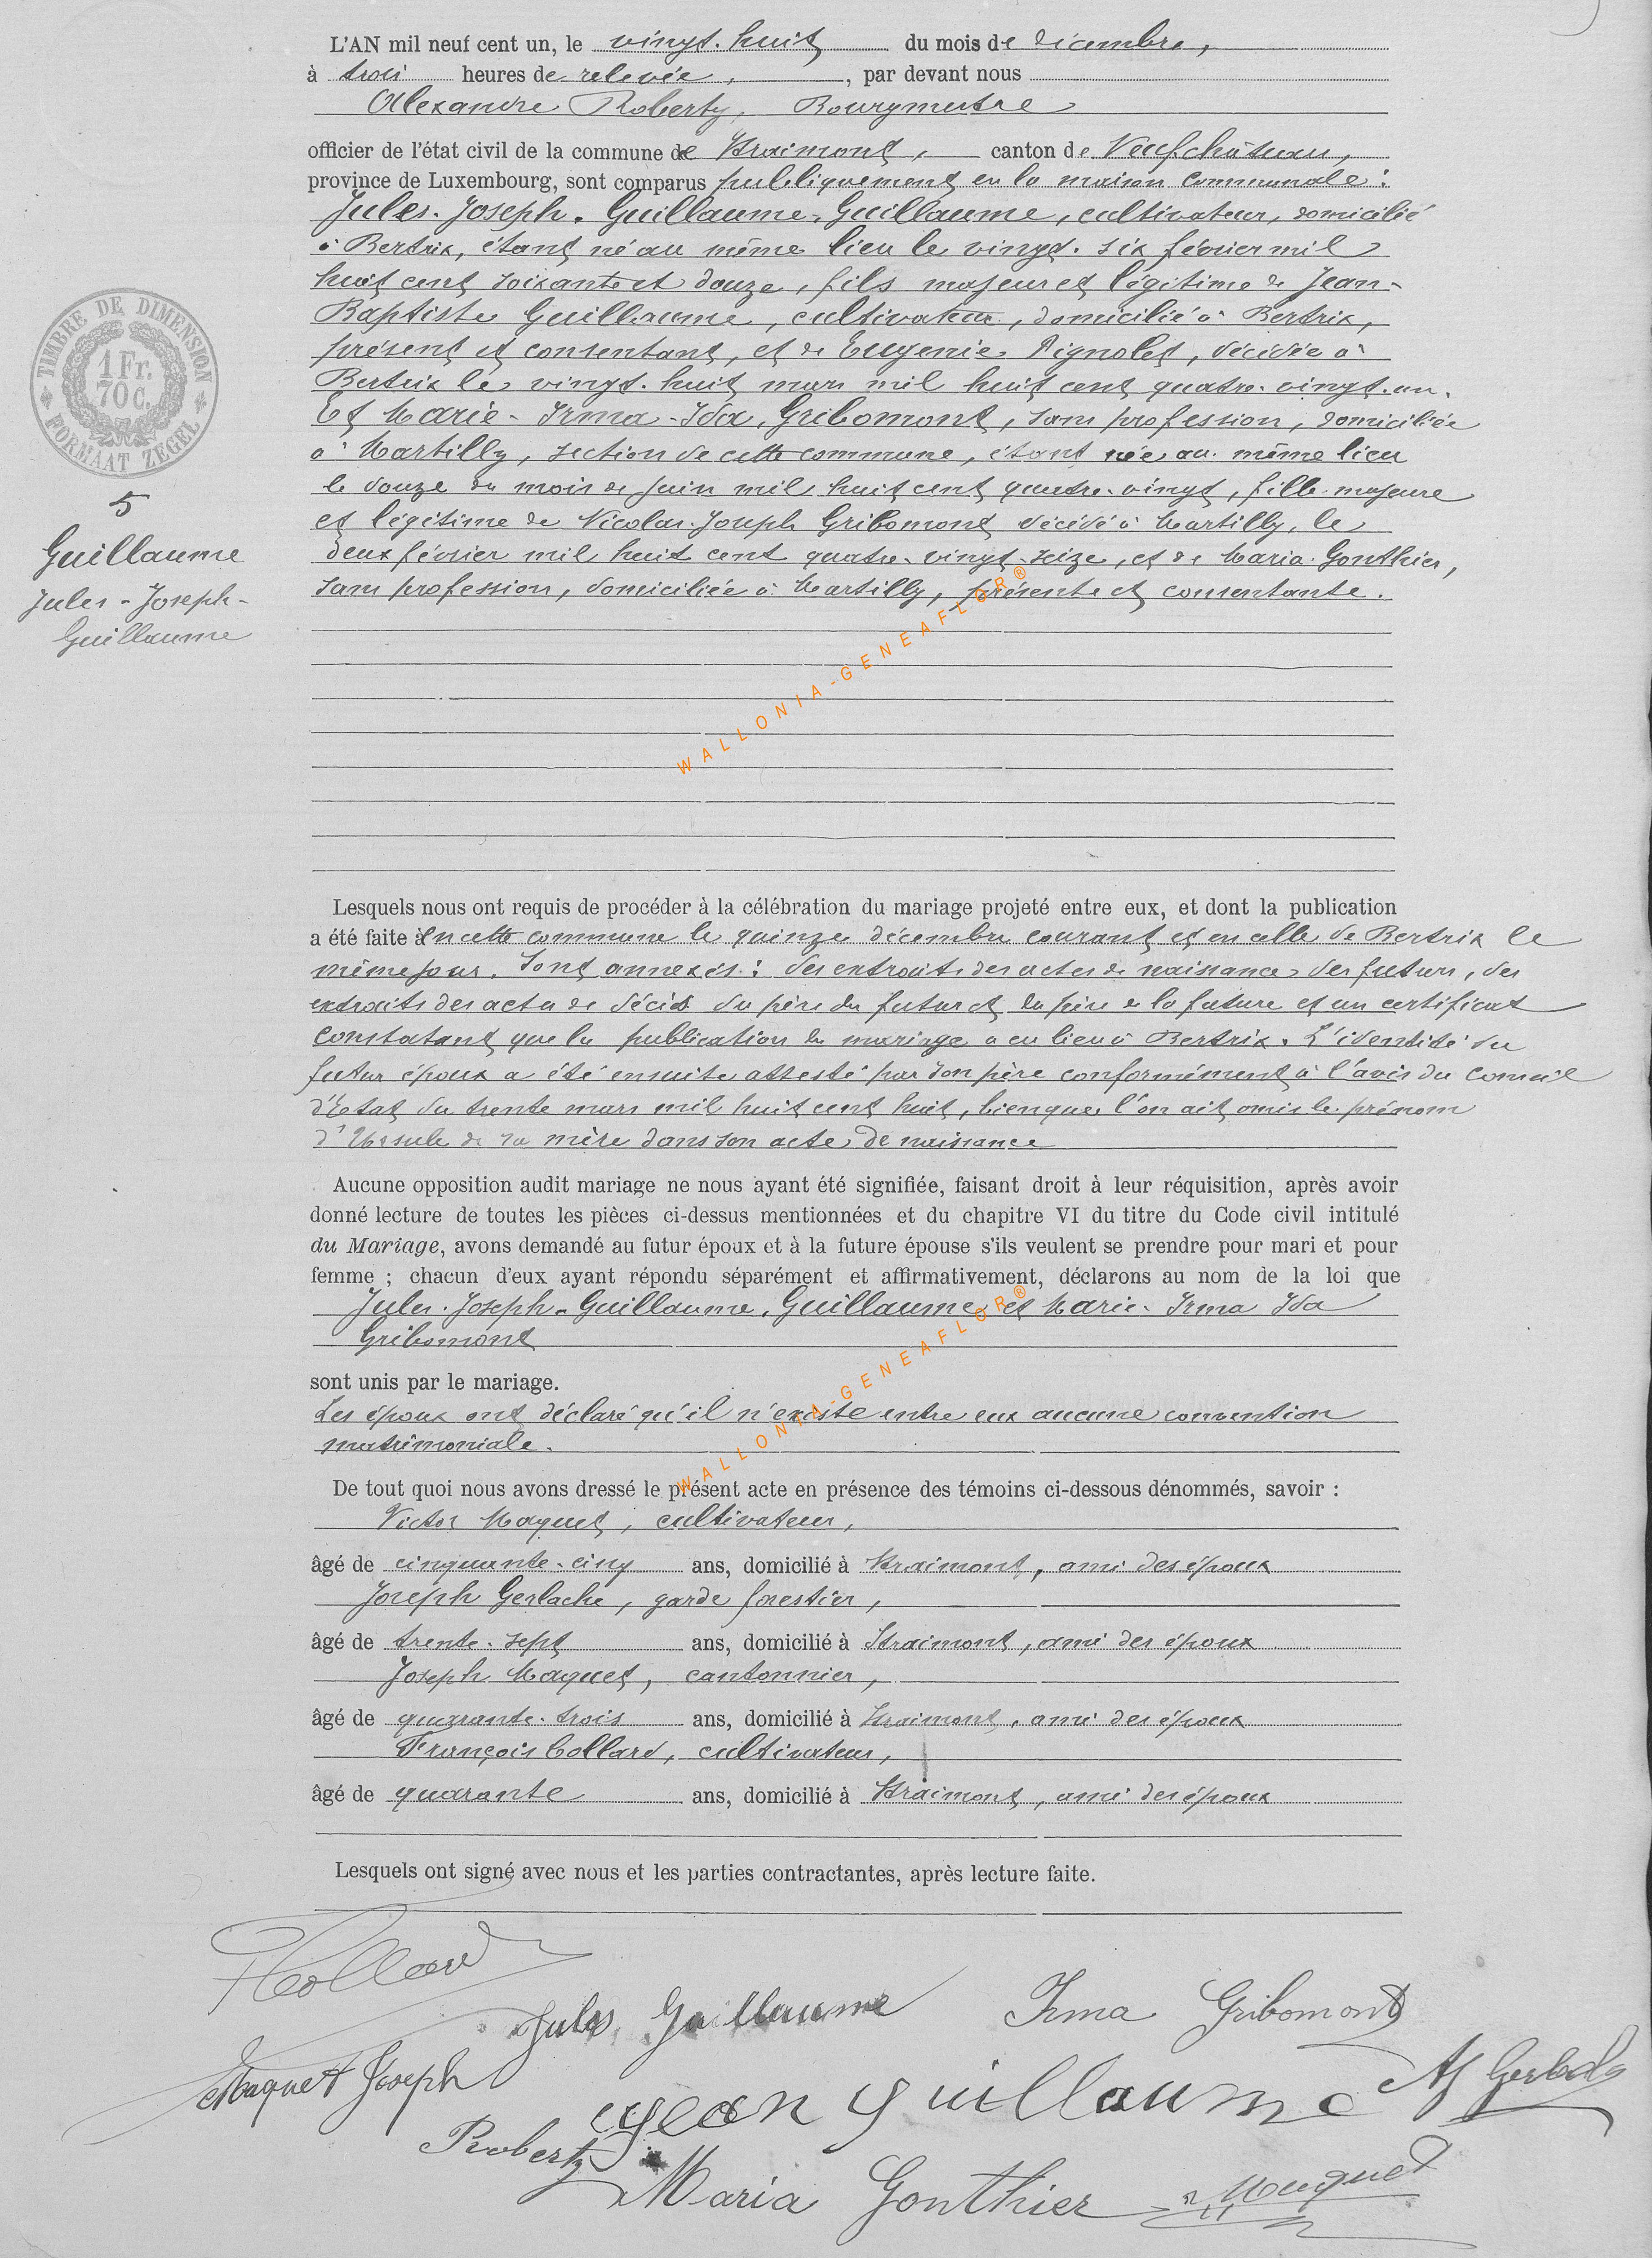 L'AN mil neuf cent un, le vingt-huit du mois de décembre,
à trois heures de relevée, par devant nous
Alexandre Roberty, Bourgmestre
officier de l'état civil de la commune de Straimont, canton de Neufchâteau,
province de Luxembourg, sont comparus publiquement en la maison communale:
Jules-Joseph-Guillaume Guillaume, cultivateur, domicilié
à Bertrix, étant né au même lieu le vingt-six février mil
huit cent soixante et douze, fils majeur et légitime de Jean-
Baptiste Guillaume, cultivateur, domicilié à Bertrix,
présent et consentant, et de Eugenie Pignolet, décédée à
Bertrix le vingt-huit mars mil huit cent quatre-vingt-un.
Et Marie-Irma-Ida Gribomont, sans profession, domiciliée
à Martilly, section de cette commune, étant née au même lieu
le douze du mois de juin mil huit cent quatre-vingt, fille majeure
et légitime de Nicolas-Joseph Gribomont décédé à Martilly, le
deux février mil huit cent quatre-vingt-seize, et de Maria Gonthier,
sans profession, domiciliée à Martilly, présente et consentante.
TIMBRE DE DIMENSION
1 Fr.
70 C.
FORMAAT ZEGEL
5
Guillaume
Jules-Joseph-
Guillaume
WALLONIA-GENEAFLOR®
Lesquels nous ont requis de procéder à la célébration du mariage projeté entre eux, et dont la publication
a été faite en cette commune le quinze décembre courant et en celle de Bertrix le
même jour. Sont annexés: des extraits des actes de naissance des futurs, des
extraits des actes de décès du père du futur et du père de la future et un certificat
constatant que la publication du mariage a eu lieu à Bertrix. L'identité du
futur époux a été ensuite attesté par son père conformément à l'avis du Conseil
d'Etat du trente mars mil huit cent huit, bien que l'on ait omis le prénom
d'Ursule de sa mère dans son acte de naissance
Aucune opposition audit mariage ne nous ayant été signifiée, faisant droit à leur réquisition, après avoir
donné lecture de toutes les pièces ci-dessus mentionnées et du chapitre VI du titre du Code civil intitulé
du Mariage, avons demandé au futur époux et à la future épouse s'ils veulent se prendre pour mari et pour
femme ; chacun d'eux ayant répondu séparément et affirmativement, déclarons au nom de la loi que
Jules-Joseph-Guillaume Guillaume et Marie-Irma Ida
Gribomont
sont unis par le mariage.
Les époux ont déclaré qu'il n'existe entre eux aucune convention
matrimoniale.
WALLONIA-GENEAFLOR®
De tout quoi nous avons dressé le présent acte en présence des témoins ci-dessous dénommés, savoir :
Victor Maquet, cultivateur,
âgé de cinquante-cinq ans, domicilié à Straimont, ami des époux
Joseph Gerlache, garde forestier,
âgé de trente-sept ans, domicilié à Straimont, ami des époux
Joseph Maquet, cantonnier,
âgé de quarante-trois ans, domicilié à Straimont, ami des époux
François Collard, cultivateur,
âgé de quarante ans, domicilié à Straimont, ami des époux
Lesquels ont signé avec nous et les parties contractantes, après lecture faite.
F Collard
Jules Guillaume Irma Gribomont
Maquet Joseph Jean Guillaume Gerlache
Roberty
Maria Gonthier Maquet